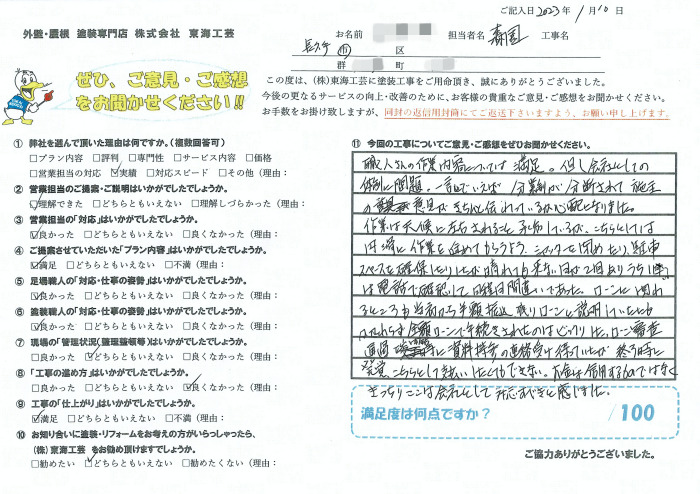 ご記入日 2023 年 1 月 10 日
外壁・屋根 塗装専門店 株式会社 東海工芸
お名前
担当者名
工事名
長久手 市 区
群 町
ぜひ、ご意見・ご感想
をお聞かせください!!
この度は、(株)東海工芸に塗装工事をご用命頂き、誠にありがとうございました。
今後の更なるサービスの向上・改善のために、お客様の貴重なご意見・ご感想をお聞かせください。
お手数をお掛け致しますが、同封の返信用封筒にてご返送下さいますよう、お願い申し上げます。
① 弊社を選んで頂いた理由は何ですか。(複数回答可)
□プラン内容 □評判 □専門性 □サービス内容 □価格
□営業担当の対応 □実績 □対応スピード □その他(理由:
② 営業担当のご提案・ご説明はいかがでしたでしょうか。
□理解できた □どちらともいえない □理解しづらかった(理由:
③ 営業担当の「対応」はいかがでしたでしょうか。
□良かった □どちらともいえない □良くなかった(理由:
④ ご提案させていただいた「プラン内容」はいかがでしたか。
□満足 □どちらともいえない □不満(理由:
⑤ 足場職人の「対応・仕事の姿勢」はいかがでしたでしょうか。
□良かった □どちらともいえない □良くなかった(理由:
⑥ 塗装職人の「対応・仕事の姿勢」はいかがでしたでしょうか。
□良かった □どちらともいえない □良くなかった(理由:
⑦ 現場の「管理状況(整理整頓等)」はいかがでしたでしょうか。
□良かった □どちらともいえない □良くなかった(理由:
⑧ 「工事の進め方」はいかがでしたでしょうか。
□良かった □どちらともいえない □良くなかった(理由:
⑨ 工事の「仕上がり」はいかがでしたでしょうか。
□満足 □どちらともいえない □不満(理由:
⑩ お知り合いに塗装・リフォームをお考えの方がいらっしゃったら、
(株)東海工芸 をお勧め頂けますでしょうか。
□勧めたい □どちらともいえない □勧めたくない(理由:
⑪ 今回の工事についてご意見・ご感想をぜひお聞かせください。
職人さんの作業内容については満足。但し会社としての
体制に問題。一言でいえば分業制が分断されて施主
の意見がきちんと伝わているか心配になりました。
作業は天候に左右されると承知しているが、こちらとしては
円滑に作業を進めてもらうよう、シャッターを閉めたり、駐車
スペースを確保したりしたが晴れても来ない日が2回あり
は電話で確認して日程は間違いであった。ローンに関わ
るところも当初から半額振込 残りローンと説明していたにも
かかわらず全額ローンで手続きされたのはどうかした。ローン審査
通過 に資料 の連絡 待っていたが 終了時に
発覚 こちらとして もできない。お金は信用するものではなく
きっちり ここは会社として 対応すべきと感じました。
満足度は何点ですか?
/100
ご協力ありがとうございました。